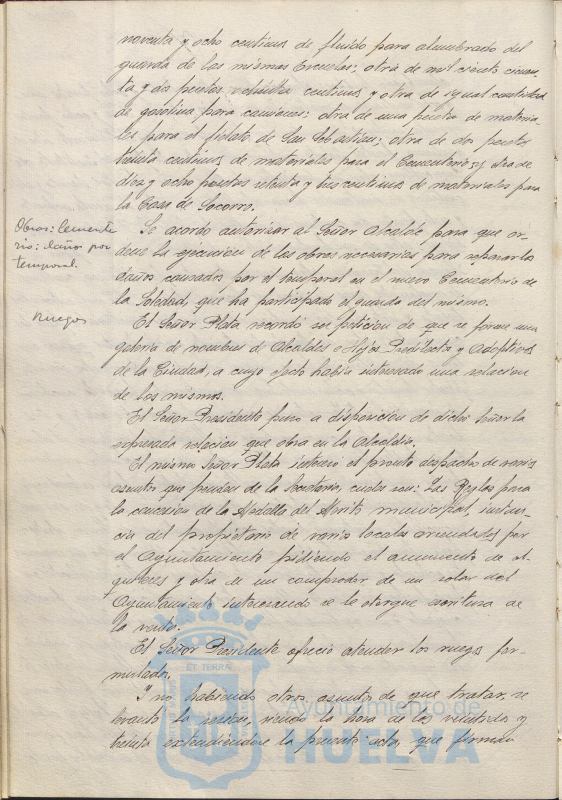 noventa y ocho centimos de fluido para alumbrado del
guarda de las mismas Escuelas; otra de mil ciento cincuen-
ta y dos pesetas centimos y otra de igual cantidad
de gasolina para camiones; otra de una peseta de materia-
les para el fielato de San Sebastian; otra de dos pesetas
treinta centimos de materiales para el Cementerio; y otra de
diez y ocho pesetas setenta y tres centimos de materiales para
la Casa de Socorro.
Obras: Cemente
rio: daños por
temporal.
Se acordo autorizar al Señor Alcalde para que or-
dene la ejecucion de las obras necesarias para reparar los
daños causados por el temporal en el nuevo Cementerio de
la Soledad, que ha participado el guarda del mismo.
Ruegos
El Señor Plata recordó su peticion de que se forme una
galeria de nombres de Alcaldes e Hijos Predilectos y Adoptivos
de la Ciudad, a cuyo efecto habia interesado una relacion
de los mismos.
El Señor Presidente puso a disposicion de dicho Señor la
expresada relacion que obra en la Alcaldia.
El mismo Señor Plata intereso el pronto despacho de varios
asuntos que penden de la Secretaria, cuales son: Las Reglas para
la concesion de la Medalla del Merito municipal, instan-
cia del propietario de varios locales arrendados por
el Ayuntamiento pidiendo el aumento de al-
quileres y otra de un comprador de un solar del
Ayuntamiento interesando se le otorgue escritura de
la venta.
El Señor Presidente ofrecio atender los ruegos for-
mulados.
Y no habiendo otros asuntos de que tratar, se
levantó la sesion, siendo la hora de las veintidos y
treinta extendiendose la presente acta, que firman
ET TERRA
Ayuntamiento de
HUELVA